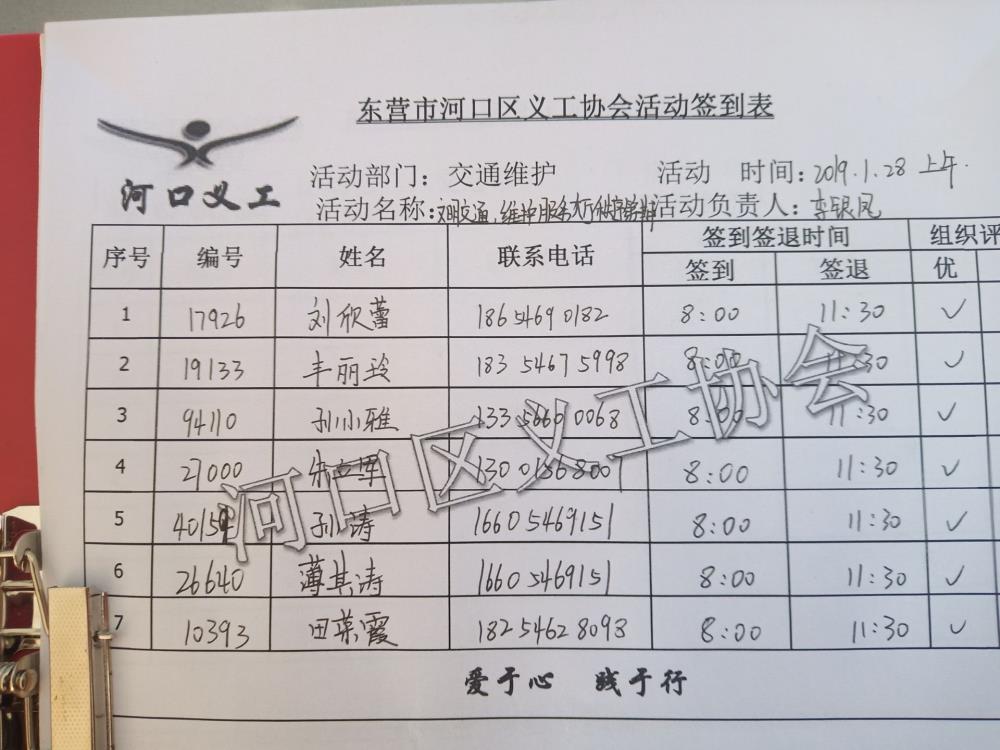 东营市河口区义工协会活动签到表
河口义工
活动部门：交通维护 活动 时间：2019.1.28 上午.
活动名称：文明交通，维护服务大厅秩序 活动负责人：李银凤
序号 编号 姓名 联系电话 签到签退时间 组织评
签到 签退 优
1 17926 刘欣蕾 18654690182 8:00 11:30 ✓
2 19133 丰丽玲 18354675998 8:00 11:30 ✓
3 94110 孙小雅 13356600068 8:00 11:30 ✓
4 27000 朱立军 8:00 11:30 ✓
5 孙涛 16605469151 8:00 11:30 ✓
6 26640 薄其涛 16605469151 8:00 11:30 ✓
7 10393 田荣霞 18254628098 8:00 11:30 ✓
爱于心 践于行
河口区义工协会